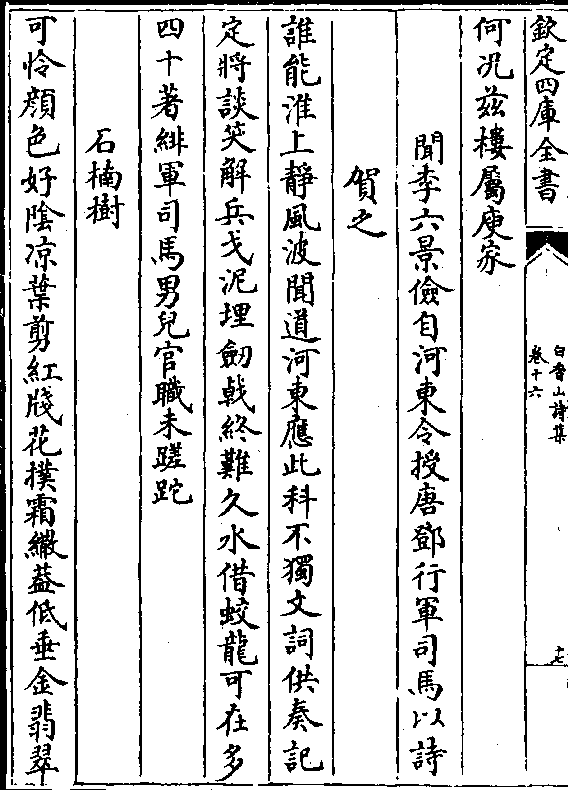 欽定四庫全書
白香山詩集
卷十六
十七
何況兹樓屬庾家
聞李六景儉自河東令授唐鄧行軍司馬以詩
賀之
誰能淮上靜風波聞道河東應此科不獨文詞供奏記
定將談笑解兵戈泥埋劒戟終難久水借蛟龍可在多
四十著緋軍司馬男兒官職未蹉跎
石楠樹
可怜顔色好陰凉葉剪紅牋花撲霜繖葢低垂金翡翠